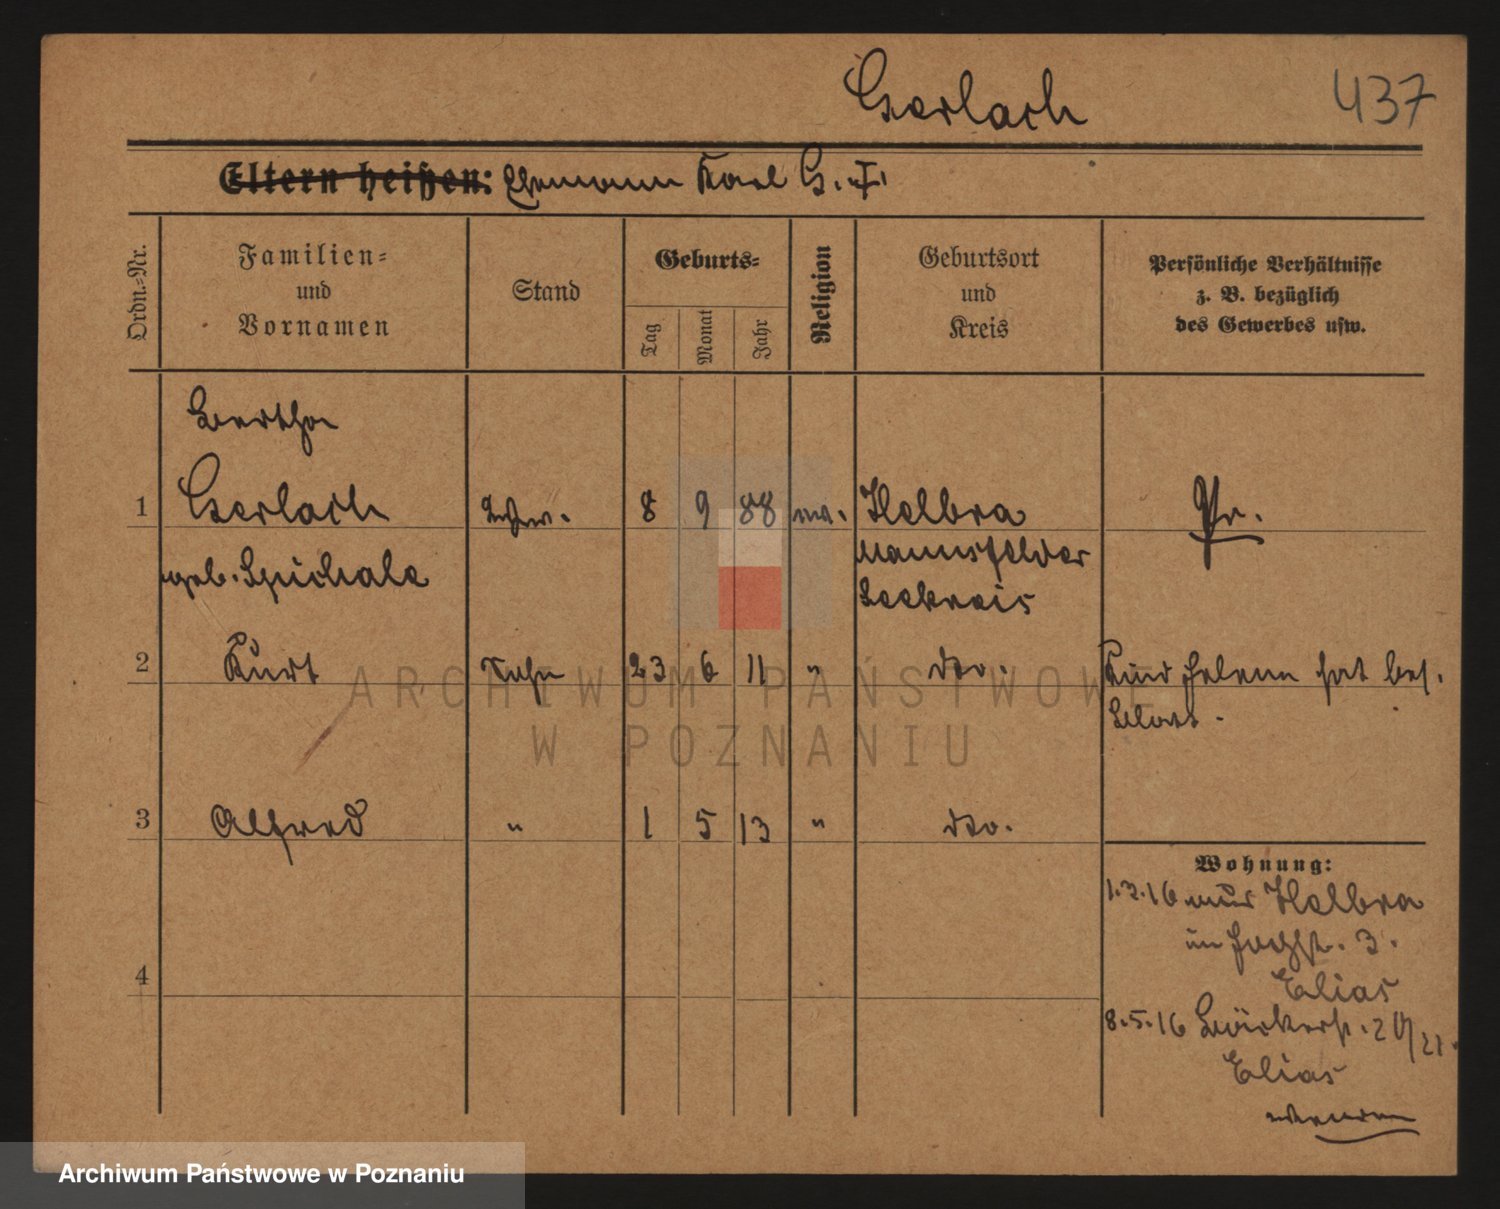 Gerlach
437
Eltern heißen: Ehemann Karl G. I.
Ordn.-Nr.
Familien-
und
Vornamen
Stand
Geburts-
Tag
Monat
Jahr
Religion
Geburtsort
und
Kreis
Persönliche Verhältnisse
z. B. bezüglich
des Gewerbes usw.
Bertha
1 Gerlach 8 9 88 ev. Helbra Pr.
geb. Spichale Mannsfelder
Seekreis
2 Kurt Sohn 23 6 11 " dto. Kind Helene hat bes.
Blatt.
3 Alfred " 1 5 13 " dto.
Wohnung:
1.3.16 aus Helbra
in 3.
Elias
4
8.5.16 Bäckerst. 21.
Elias
ARCHIWUM PAŃSTWOWE
W POZNANIU
Archiwum Państwowe w Poznaniu